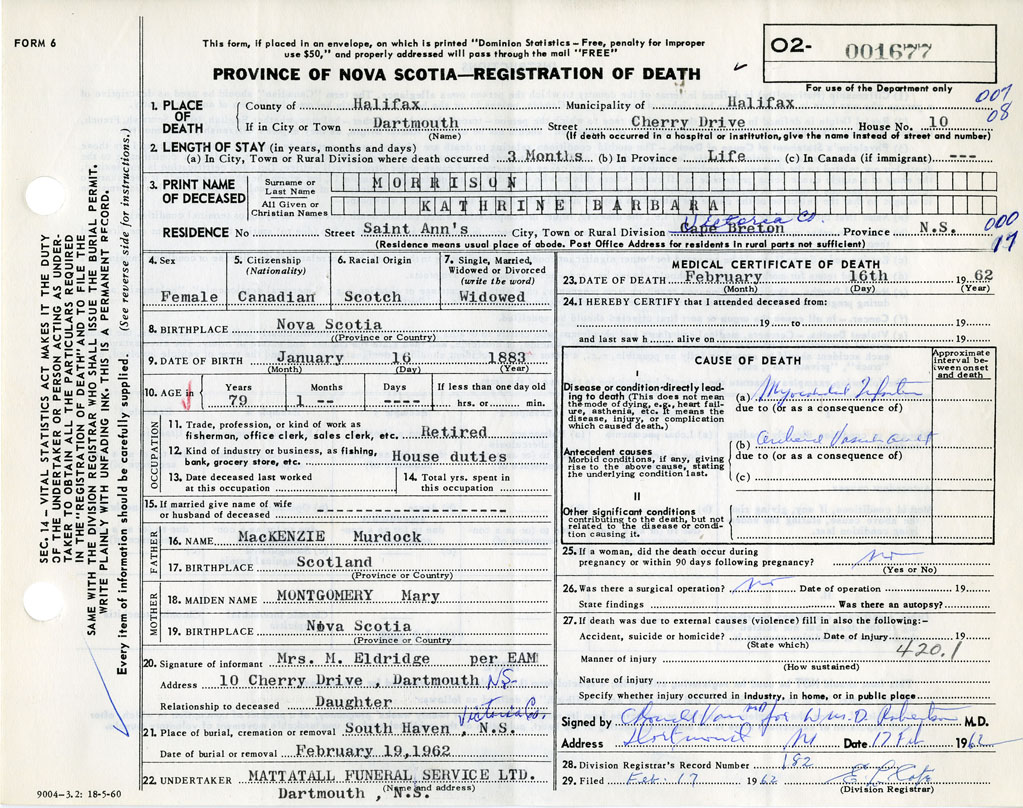 FORM 6
This form, if placed in an envelope, on which is printed "Dominion Statistics – Free, penalty for improper
use $50," and properly addressed will pass through the mail "FREE"
PROVINCE OF NOVA SCOTIA—REGISTRATION OF DEATH
O2- 001677
For use of the Department only
007
08
SEC. 14 – VITAL STATISTICS ACT MAKES IT THE DUTY
OF THE UNDERTAKER OR PERSON ACTING AS UNDER-
TAKER TO OBTAIN ALL THE PARTICULARS REQUIRED
IN THE "REGISTRATION OF DEATH" AND TO FILE THE
SAME WITH THE DIVISION REGISTRAR WHO SHALL ISSUE THE BURIAL PERMIT.
WRITE PLAINLY WITH UNFADING INK. THIS IS A PERMANENT RECORD.
Every item of information should be carefully supplied. (See reverse side for instructions.)
1. PLACE OF DEATH
County of Halifax Municipality of Halifax
If in City or Town Dartmouth Street Cherry Drive House No. 10
(Name) (If death occurred in a hospital or institution, give the name instead of street and number)
2. LENGTH OF STAY (in years, months and days)
(a) In City, Town or Rural Division where death occurred 3 Months (b) In Province Life (c) In Canada (if immigrant) ---
3. PRINT NAME OF DECEASED
Surname or Last Name MORRISON
All Given or Christian Names KATHRINE BARBARA
Victoria Co.
RESIDENCE No Street Saint Ann's City, Town or Rural Division Cape Breton Province N.S.
000
17
(Residence means usual place of abode. Post Office Address for residents in rural parts not sufficient)
4. Sex
Female
5. Citizenship (Nationality)
Canadian
6. Racial Origin
Scotch
7. Single, Married, Widowed or Divorced (write the word)
Widowed
8. BIRTHPLACE Nova Scotia
(Province or Country)
9. DATE OF BIRTH January 16 1883
(Month) (Day) (Year)
10. AGE in Years Months Days If less than one day old
79 1 -- ---- hrs. or min.
OCCUPATION
11. Trade, profession, or kind of work as
fisherman, office clerk, sales clerk, etc. Retired
12. Kind of industry or business, as fishing,
bank, grocery store, etc. House duties
13. Date deceased last worked at this occupation
14. Total yrs. spent in this occupation
15. If married give name of wife
or husband of deceased
FATHER
16. NAME MacKENZIE Murdock
17. BIRTHPLACE Scotland
(Province or Country)
MOTHER
18. MAIDEN NAME MONTGOMERY Mary
19. BIRTHPLACE Nova Scotia
(Province or Country
20. Signature of informant Mrs. M. Eldridge per EAM
Address 10 Cherry Drive , Dartmouth NS-
Relationship to deceased Daughter
Victoria Co.
21. Place of burial, cremation or removal South Haven , N.S.
Date of burial or removal February 19,1962
22. UNDERTAKER MATTATALL FUNERAL SERVICE LTD.
(Name and address)
Dartmouth , N.S.
9004-3.2: 18-5-60
MEDICAL CERTIFICATE OF DEATH
23. DATE OF DEATH February 16th 1962
(Month) (Day) (Year)
24. I HEREBY CERTIFY that I attended deceased from:
19 to 19
and last saw h alive on 19
CAUSE OF DEATH
Approximate interval between onset and death
I
Disease or condition directly lead-
ing to death (This does not mean
the mode of dying, e.g., heart fail-
ure, asthenia, etc. It means the
disease, injury, or complication
which caused death.)
(a) Myocardial
due to (or as a consequence of)
Antecedent causes
Morbid conditions, if any, giving
rise to the above cause, stating
the underlying condition last.
(b)
due to (or as a consequence of)
(c)
II
Other significant conditions
contributing to the death, but not
related to the disease or condi-
tion causing it.
25. If a woman, did the death occur during
pregnancy or within 90 days following pregnancy? no
(Yes or No)
26. Was there a surgical operation? no Date of operation 19
State findings Was there an autopsy?
27. If death was due to external causes (violence) fill in also the following:-
Accident, suicide or homicide? Date of injury 19
(State which)
420.1
Manner of injury
(How sustained)
Nature of injury
Specify whether injury occurred in industry, in home, or in public place
Signed by MD for Wm. D. Robertson M.D.
Address Date 17 Feb 1962
28. Division Registrar's Record Number 182
29. Filed Feb. 17 1962
(Division Registrar)